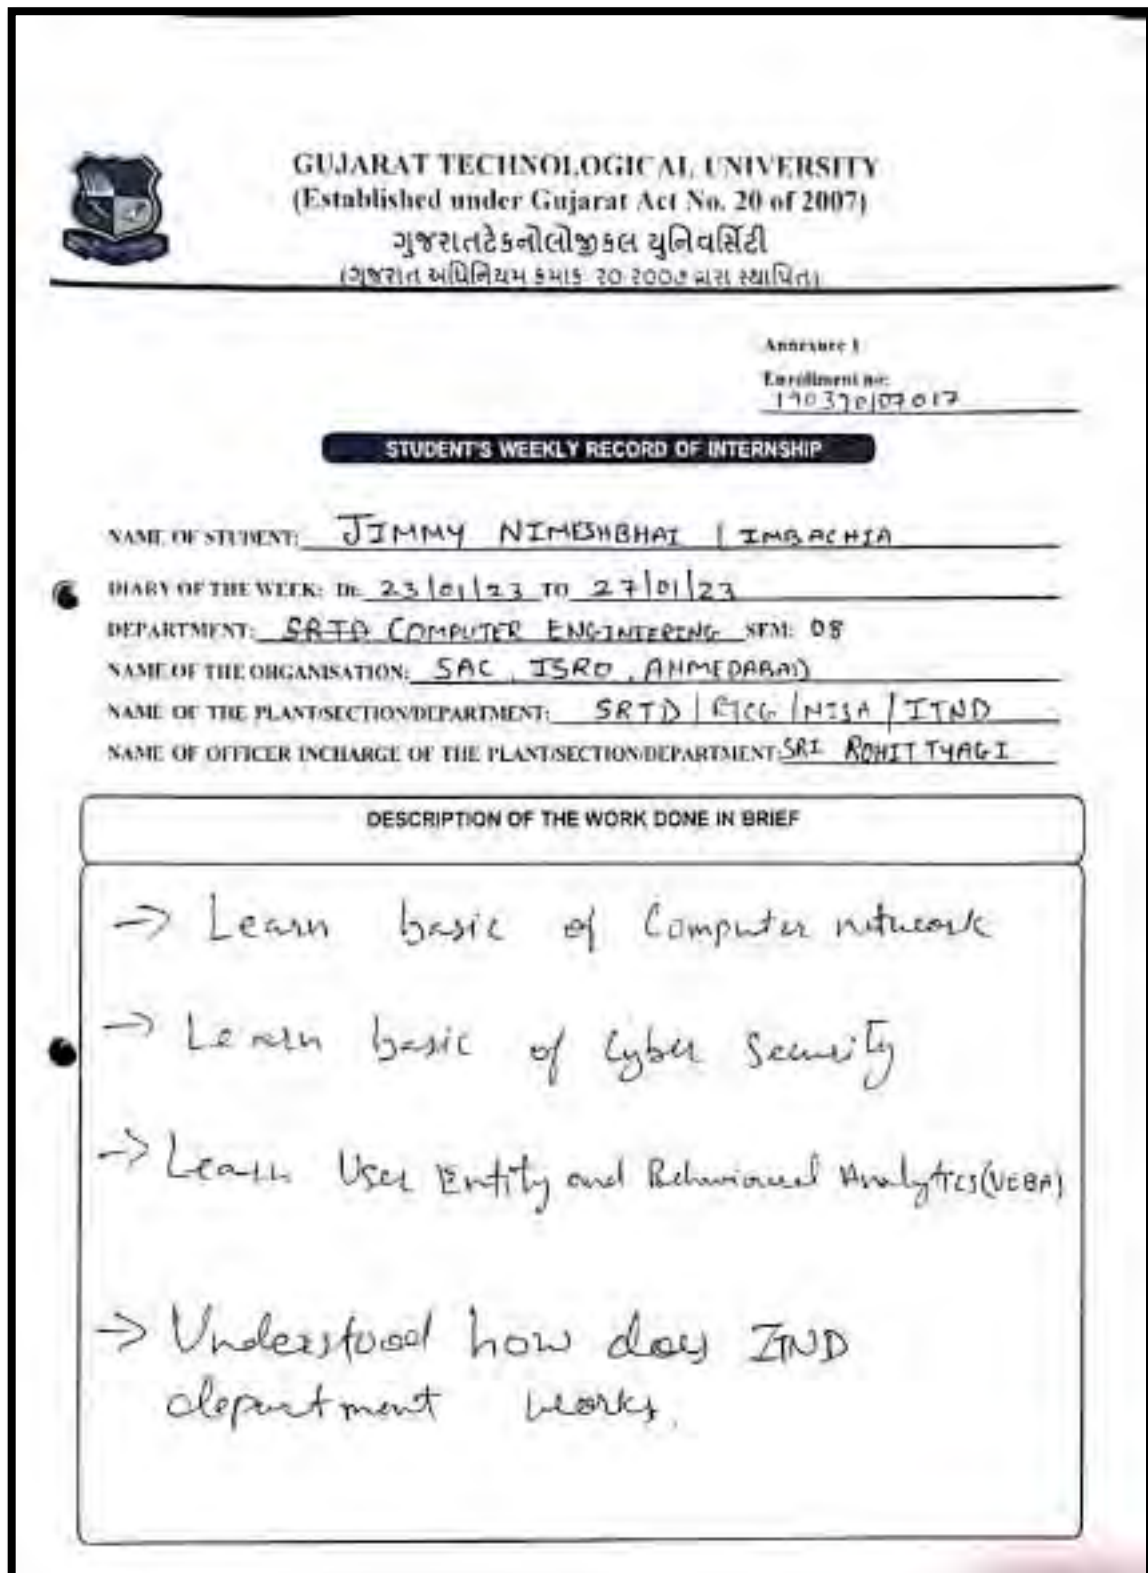 GUJARAT TECHNOLOGICAL UNIVERSITY
(Established under Gujarat Act No. 20 of 2007)
ગુજરાતટેકનોલોજીકલ યુનિવર્સિટી
(ગુજરાત અધિનિયમ ક્રમાંક ૨૦ ૨૦૦૭ દ્વારા સ્થાપિત)
Annexure 1
Enrollment no:
190370107017
STUDENT'S WEEKLY RECORD OF INTERNSHIP
NAME OF STUDENT: JIMMY NIMESHBHAI IMBACHIA
DIARY OF THE WEEK: Dt. 23/01/23 TO 27/01/23
DEPARTMENT: COMPUTER ENGINTERING SEM: 08
NAME OF THE ORGANISATION: SAC, ISRO, AHMEDABAD
NAME OF THE PLANT/SECTION/DEPARTMENT: SRTD | RTCG | MISA | ITND
NAME OF OFFICER INCHARGE OF THE PLANT/SECTION/DEPARTMENT: SRI ROHIT TYAGI
DESCRIPTION OF THE WORK DONE IN BRIEF
→ Learn basic of Computer network
→ Learn basic of Cyber Security
→ Learn User Entity and Behavioural Analytics (UEBA)
→ Understood how does ITND
department works.